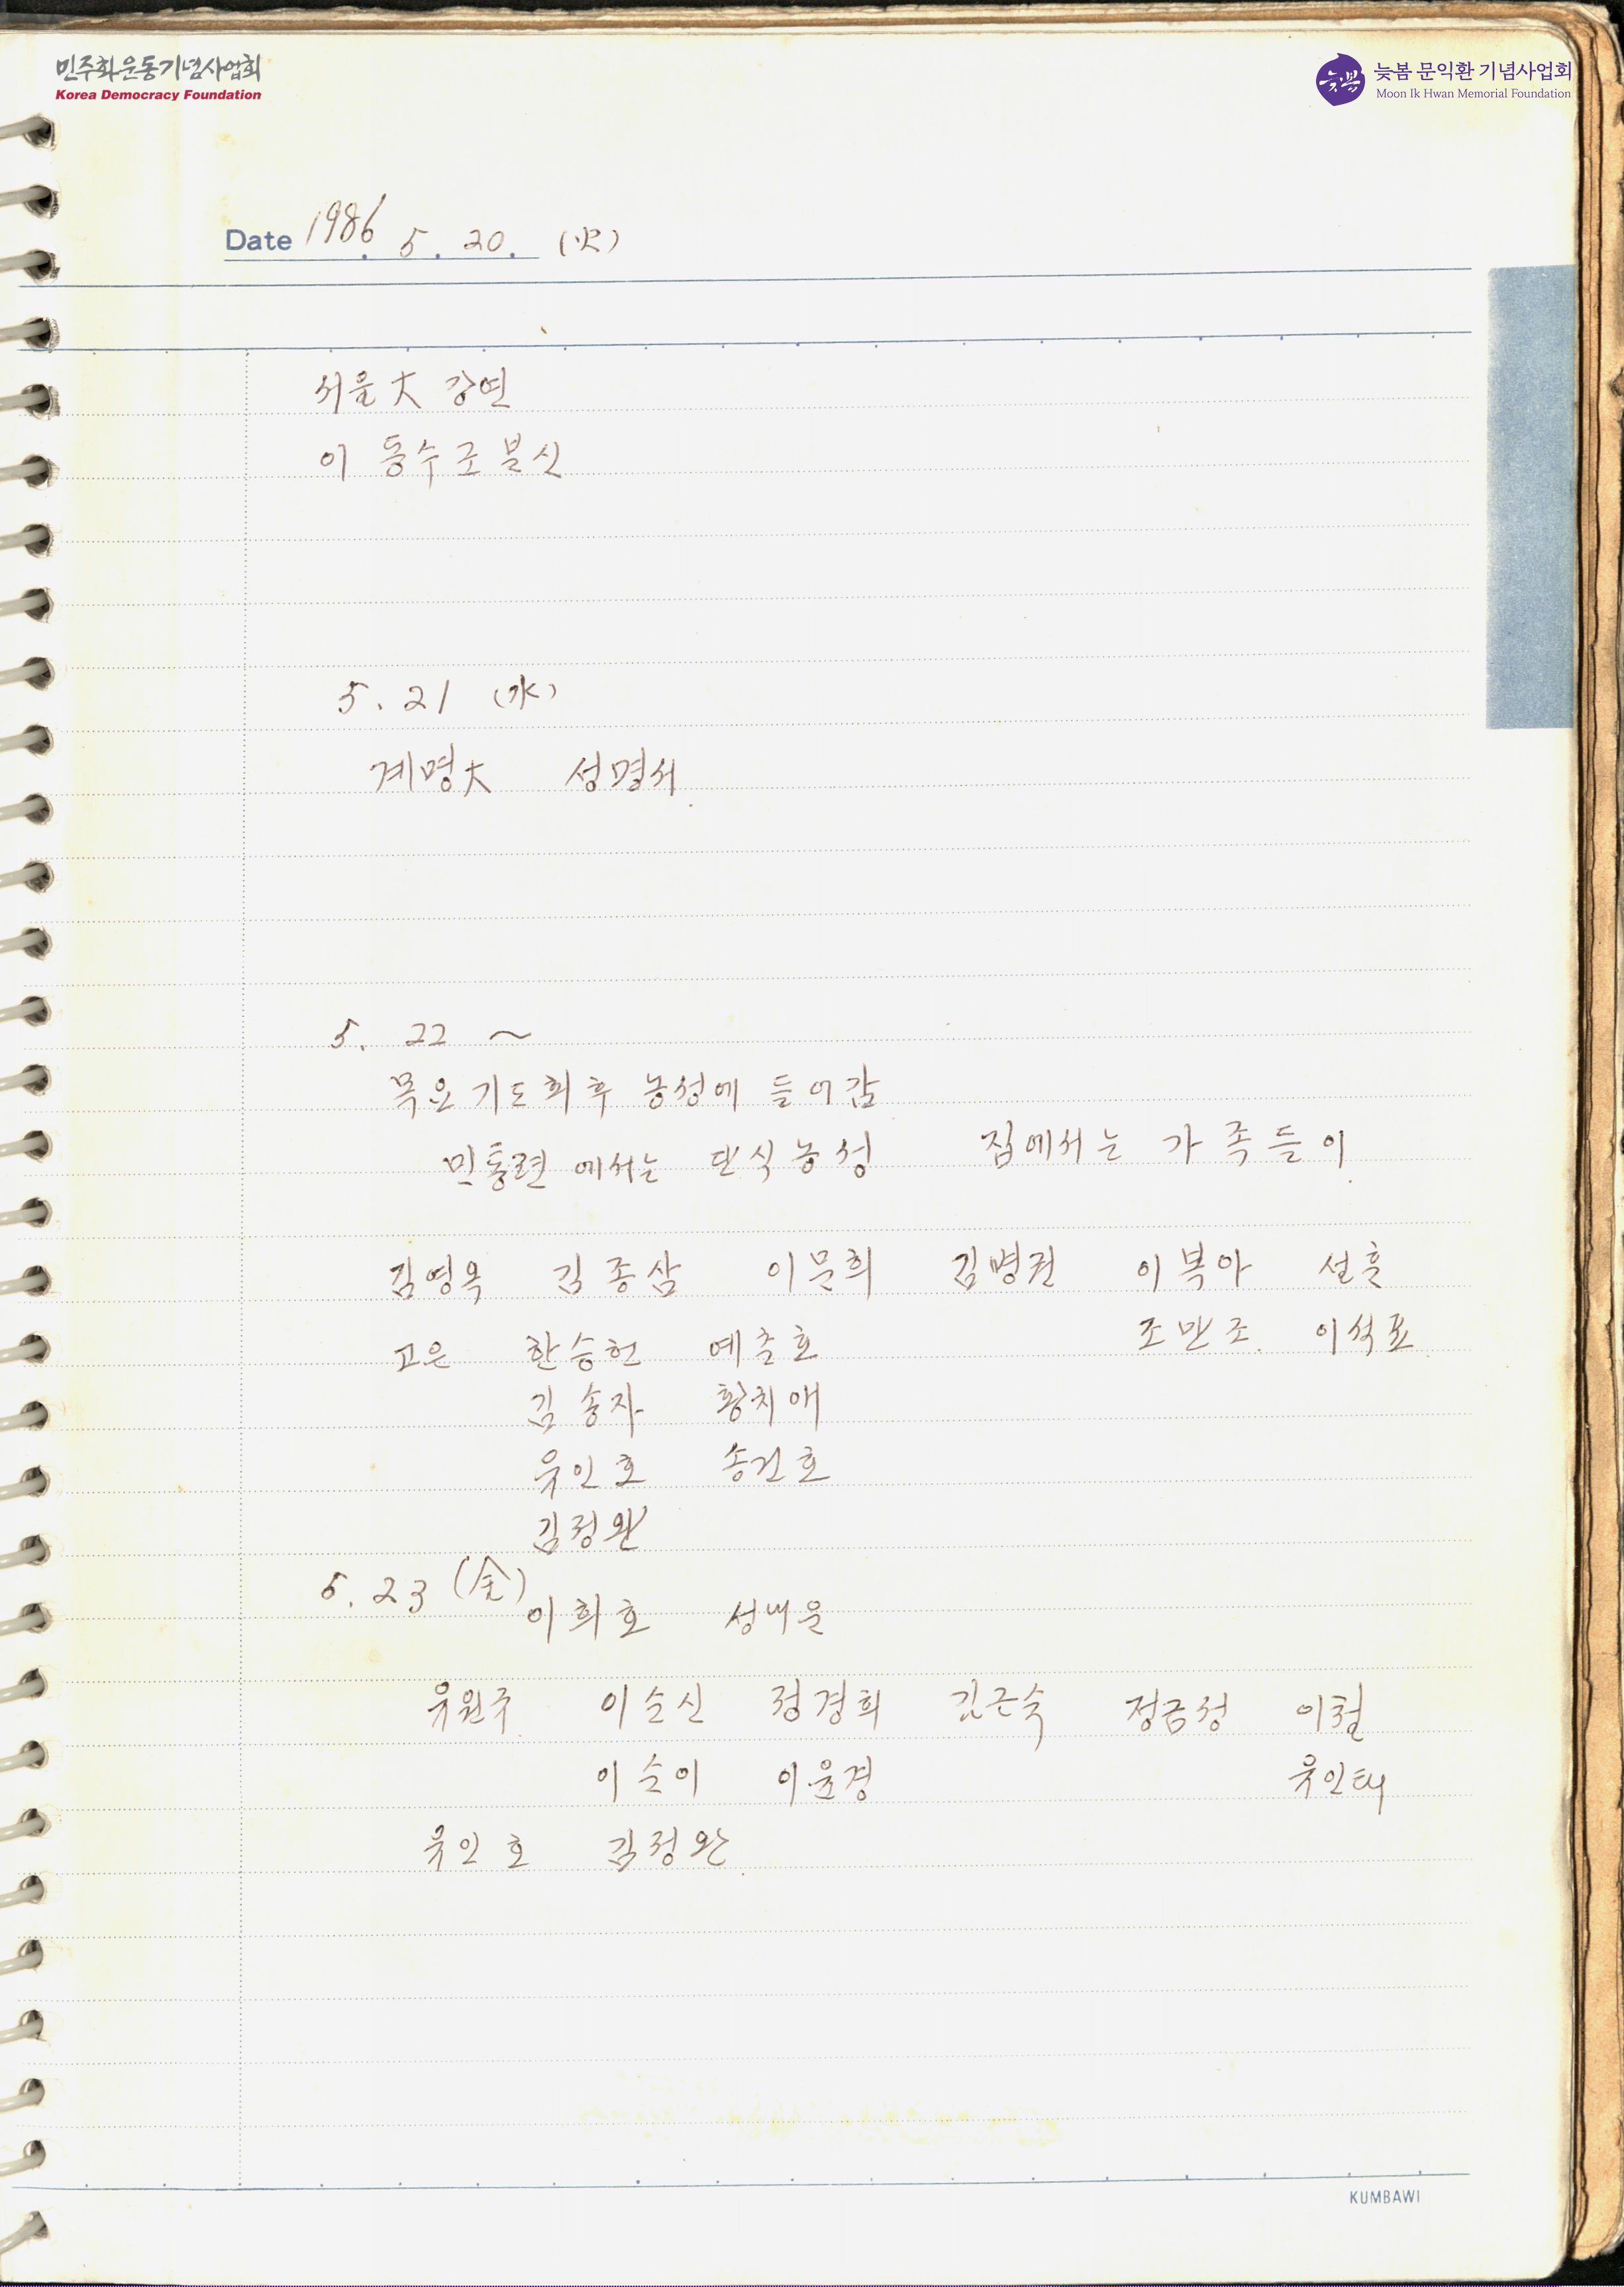 민주화운동기념사업회
Korea Democracy Foundation
늦봄 문익환 기념사업회
Moon Ik Hwan Memorial Foundation
Date 1986. 5. 20. (火)
서울大 강연
이 동수 군 분신
5. 21 (水)
계명大 성명서
5. 22 ~
목요기도회후 농성에 들어감
민통련 에서는 단식농성 집에서는 가족들이
김영옥 김종삼 이문희 김병권 이복아 설훈
고은 한승헌 예춘호 조만조 이석표
김송자 황치애
유인호 송건호
김정완
5. 23 (金)
이희호 성내운
유원규 이순신 정경희 김근숙 정금성 이철
이순이 이윤경 유인태
유인호 김정완
KUMBAWI